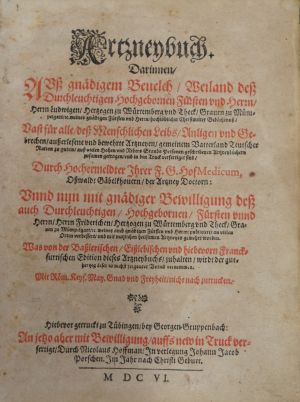 Artzneybuch.
Darinnen/
Auß gnädigem Beuelch/ Weiland deß
Durchleuchtigen Hochgebornen Fürsten vnd Herrn/
Herrn Ludwigen/ Hertzogen zu Würtemberg vnd Theck/ Grauen zu Müm-
pelgart/ meines gnädigen Fürsten vnd Herrn/ hochlöblicher
Vast für alle/ deß Menschlichen Leibs/ Anligen vnd Ge-
brechen/ außerlesene vnd bewehrte Artzneyen/ gemeinem Vatterland Teutscher
Nation zu gutem/ auß vielen Hohen vnd Nidern Stands Personen geschribenen Artzneybüchern
zusamen getragen/ vnd in den Truck verfertiget sind/
Durch Hochermeldter Ihrer F. G. Hof Medicum,
Oßwaldt Gäbelkhouern/ der Artzney Doctorn:
Vnnd nun mit gnädiger Bewilligung deß
auch Durchleuchtigen/ Hochgebornen/ Fürsten vnnd
Herrn/ Herrn Friderichen/ Hertzogen zu Würtemberg vnd Theck/ Gra-
uen zu Mümpelgart/ meines auch gnädigen Fürsten vnd Herrn/ an vielen
Orten verbessert/ vnd mit nutzlichen Artzneyen gemehrt worden.
Was von der Baßlerischen/ Eißlebischen vnd hiebeuorn Franck-
furtischen Edition dieses Artzneybuchs/ zuhalten/ wird der gut-
hertzig Leser
Mit Röm. Keys. May. Gnad vnd Freyheit/ nicht nach zutrucken.
Hiebevor getruckt zu Tübingen/ bey Georgen Gruppenbach:
An jetzo aber mit Bewilligung/ auffs new in Truck ver-
fertiget/ Durch Nicolaus Hoffman/ In verlegung Johann Jacob
Porschen. Im Jahr nach Christi Geburt.
M DC VI.